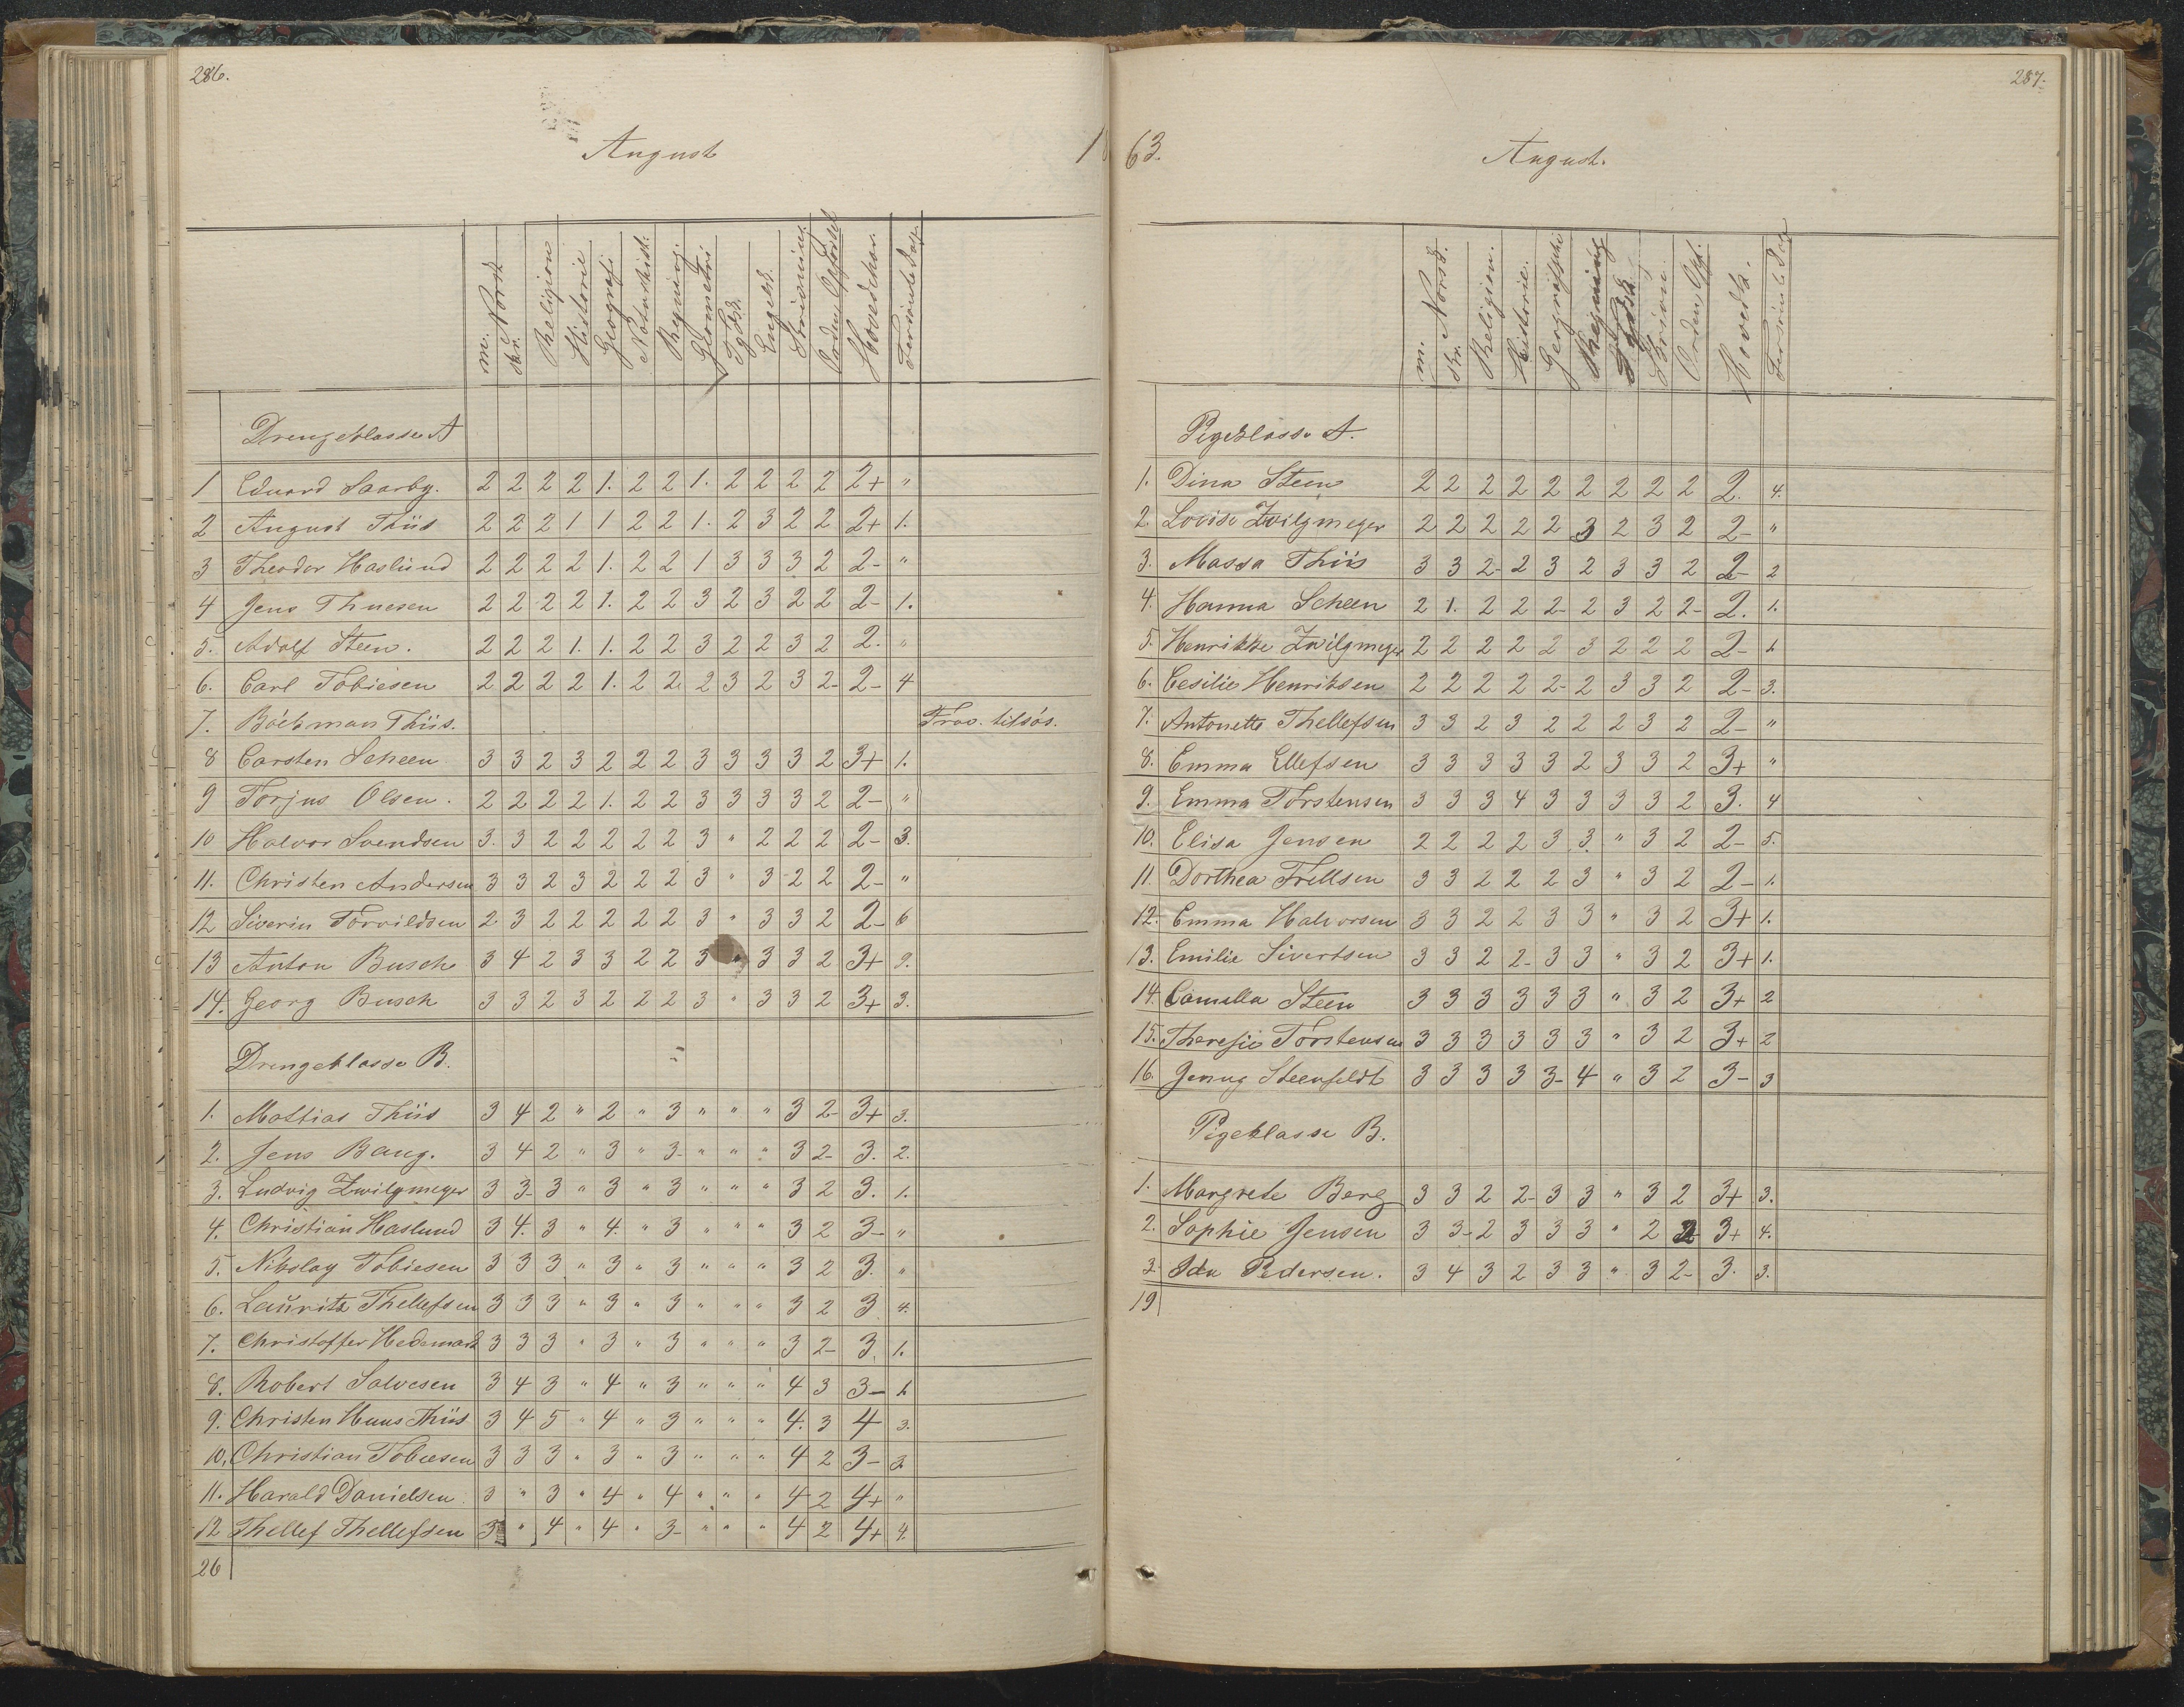 286.
August 18
m. Norsk skr. Religion Historie Geografi Naturhist. Regning Geometri Tydsk. Engelsk. Skrivning Orden, Opførsel Hovedchar. Forsømte Dage
Drengeklasse A
1 Eduard Saarby. 2 2 2 2 1. 2 2 1. 2 2 2 2 2+ "
2 August Thiis 2 2 2 1 1 2 2 1. 2 3 2 2 2+ 1.
3 Theodor Haslund 2 2 2 2 1. 2 2 1 3 3 3 2 2- "
4 Jens Thuesen 2 2 2 2 1. 2 2 3 2 3 2 2 2- 1.
5. Adolf Steen. 2 2 2 1. 1. 2 2 3 2 2 3 2 2. "
6. Carl Tobiesen 2 2 2 2 1. 2 2 2 3 2 3 2- 2- 4
7. Böckman Thiis. Frav. tilsøs.
8 Carsten Scheen 3 3 2 3 2 2 2 3 3 3 3 2 3+ 1.
9 Torjus Olsen. 2 2 2 2 1. 2 2 3 3 3 3 2 2- "
10 Halvor Svendsen 3. 3 2 2 2 2 2 3 " 2 2 2 2- 3.
11. Christen Andersen 3 3 2 3 2 2 2 3 " 3 2 2 2- "
12 Siverin Torvildsen 2 3 2 2 2 2 2 3 " 3 3 2 2- 6
13 Anton Busch 3 4 2 3 3 2 2 3 " 3 3 2 3+ 9.
14. Georg Busch 3 3 2 3 2 2 2 3 " 3 3 2 3+ 3.
Drengeklasse B.
1. Mattias Thiis 3 4 2 " 2 " 3 " " " 3 2- 3+ 3.
2. Jens Bang. 3 4 2 " 3 " 3- " " " 3 2- 3. 2.
3. Ludvig Zwilgmeyer 3 3- 3 " 3 " 3 " " " 3 2 3. 1.
4. Christian Haslund 3 4. 3 " 4. " 3 " " " 3 2 3- "
5. Nikolay Tobiesen 3 3 3 " 3 " 3 " " " 3 2 3. "
6. Lauritz Thellefsen 3 3 3 " 3 " 3 " " " 3 2 3 4.
7. Christoffer Hedemark 3 3 3 " 3 " 3 " " " 3 2- 3. 1.
8. Robert Salvesen 3 4 3 " 4 " 3 " " " 4 3 3- 1.
9. Christen Huus Thiis 3 4 5 " 4 " 3 " " " 4. 3 4 3.
10. Christian Tobiesen 3 3 3 " 3 " 3 " " " 4 2 3- 3.
11. Harald Danielsen 3 " 3 " 4 " 4 " " " 4 2 4+ "
12 Thellef Thellefsen 3 " 4 " 4 " 3- " " " 4 2 4+ 4.
26
287.
63. August.
m. Norsk. skr. Religion. Historie. Geografiske Regning Tydsk. Skrivn. Orden, Opf. Hovedk. Forsømte Dage
Pigeklasse A.
1. Dina Steen 2 2 2 2 2 2 2 2 2 2. 4.
2. Lovise Zwilgmeyer 2 2 2 2 2 3 2 3 2 2- "
3. Massa Thiis 3 3 2- 2 3 2 3 3 2 2- 2
4. Hanna Scheen 2 1. 2 2 2- 2 3 2 2- 2. 1.
5. Henrikke Zwilgmeyer 2 2 2 2 2 3 2 2 2 2- 1
6. Cesilie Henriksen 2 2 2 2 2- 2 3 3 2 2- 3.
7. Antonette Thellefsen 3 3 2 3 2 2 2 3 2 2- "
8. Emma Ellefsen 3 3 3 3 3 2 3 3 2 3+ "
9. Emma Torstensen 3 3 3 4 3 3 3 3 2 3. 4
10. Elisa Jensen 2 2 2 2 3 3. " 3 2 2- 5.
11. Dorthea Frellsen 3 3 2 2 2 3 " 3 2 2- 1.
12. Emma Halvorsen 3 3 2 2 3 3 " 3 2 3+ 1.
13. Emilie Sivertsen 3 3 2 2- 3 3 " 3 2 3+ 1.
14. Camilla Steen 3 3 3 3 3 3 " 3 2 3+ 2
15. Theresie Torstensen 3 3 3 3 3 3 " 3 2 3+ 2
16. Jenny Steenfeldt 3 3 3 3 3- 4 " 3 2 3- 3
Pigeklasse B.
1. Margrete Berg 3 3 2 2- 3 3 " 3 2 3+ 3.
2. Sophie Jensen 3 3- 2 3 3 3 " 2 2 3+ 4.
3. Ida Pedersen. 3 4 3 2 3 3 " 3 2- 3. 3.
19